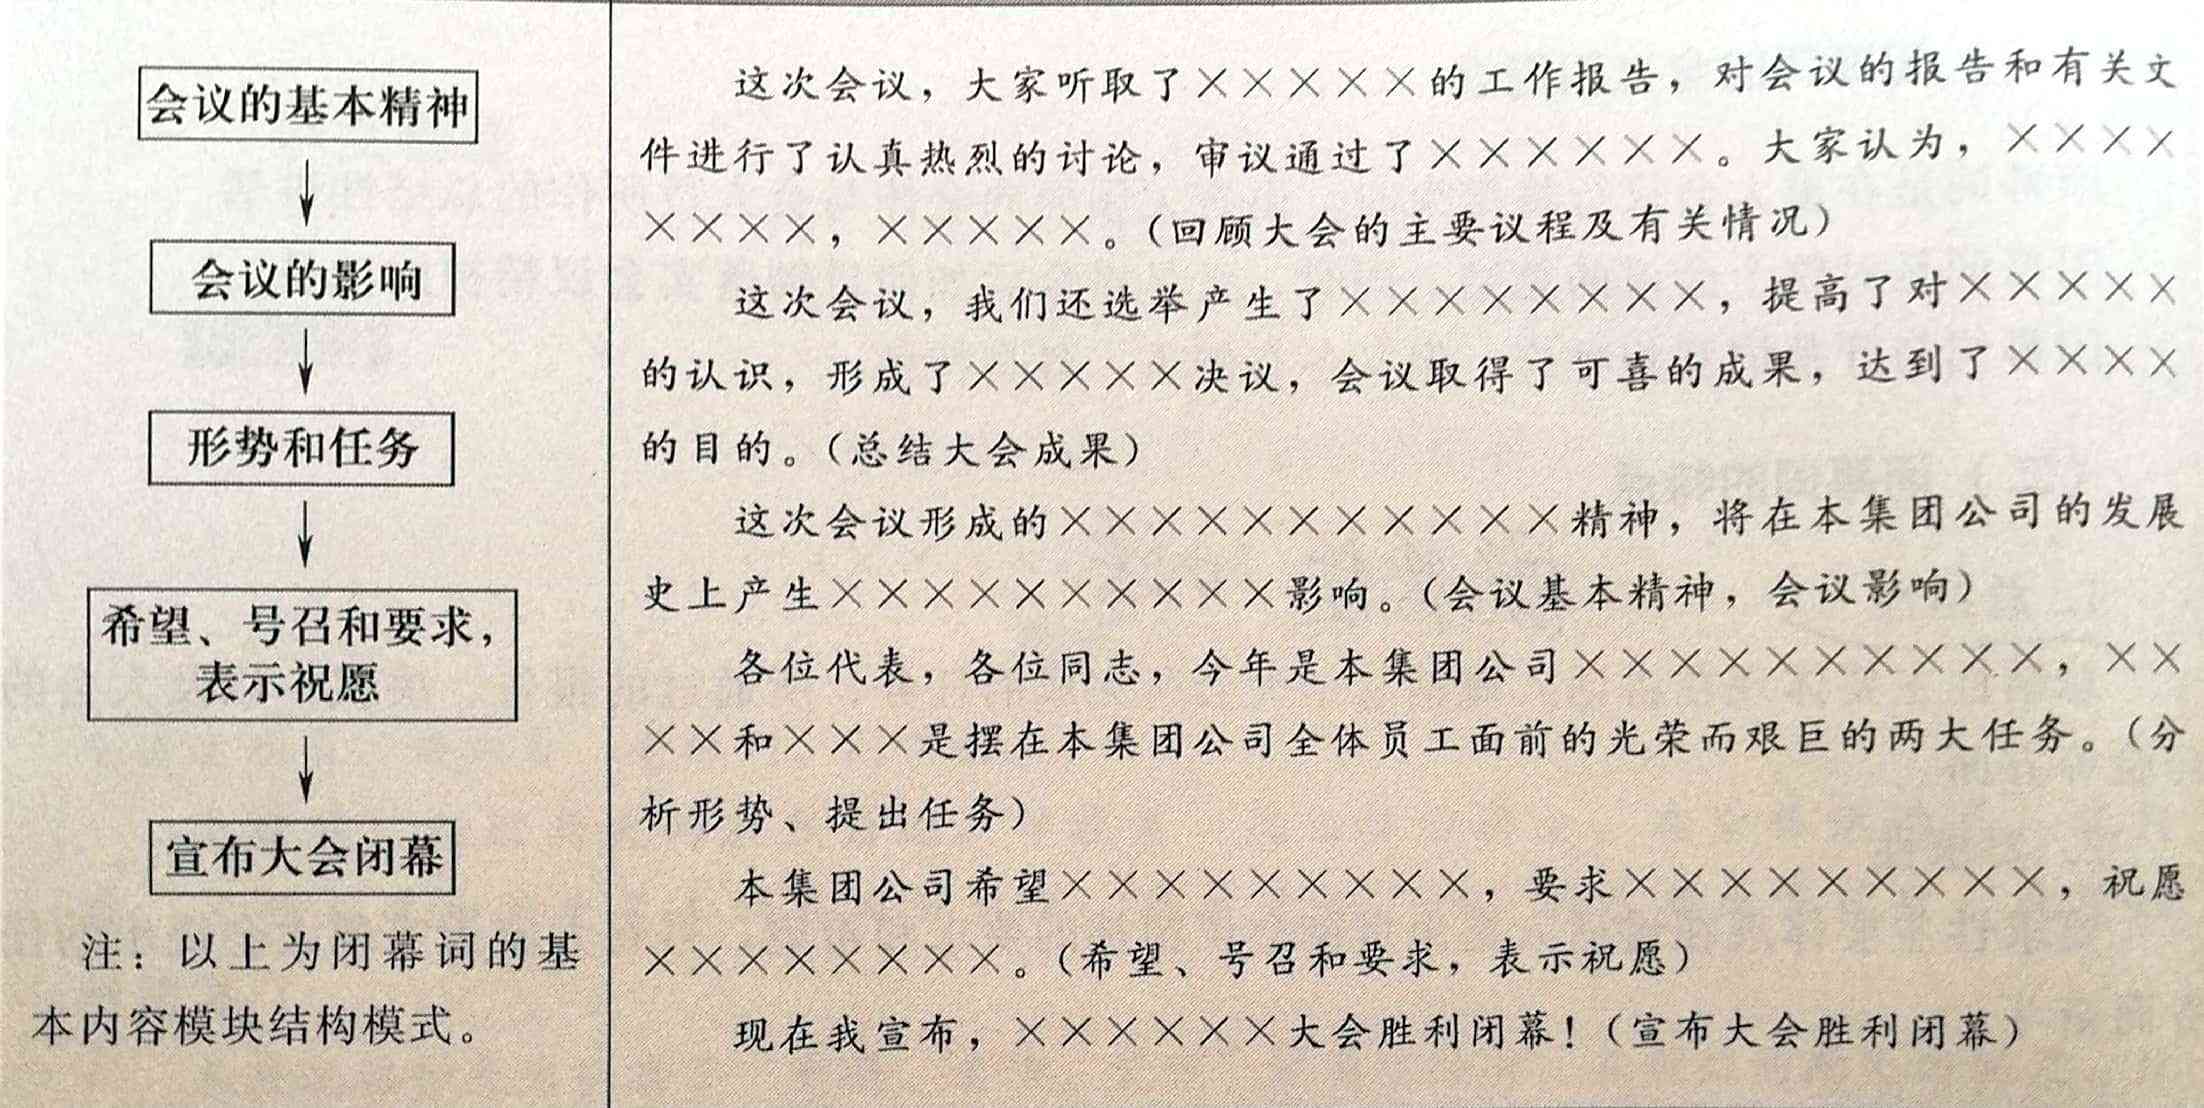 会议的基本精神
会议的影响
形势和任务
希望、号召和要求，
表示祝愿
宣布大会闭幕
注：以上为闭幕词的基
本内容模块结构模式。
这次会议，大家听取了×××××的工作报告，对会议的报告和有关文
件进行了认真热烈的讨论，审议通过了××××××。大家认为，××××
××××，×××××。（回顾大会的主要议程及有关情况）
这次会议，我们还选举产生了××××××××，提高了对×××××
的认识，形成了×××××决议，会议取得了可喜的成果，达到了××××
的目的。（总结大会成果）
这次会议形成的×××××××××××精神，将在本集团公司的发展
史上产生××××××××××影响。（会议基本精神，会议影响）
各位代表，各位同志，今年是本集团公司××××××××××，××
××和×××是摆在本集团公司全体员工面前的光荣而艰巨的两大任务。（分
析形势、提出任务）
本集团公司希望×××××××××，要求×××××××××，祝愿
××××××××。（希望、号召和要求，表示祝愿）
现在我宣布，××××××大会胜利闭幕！（宣布大会胜利闭幕）